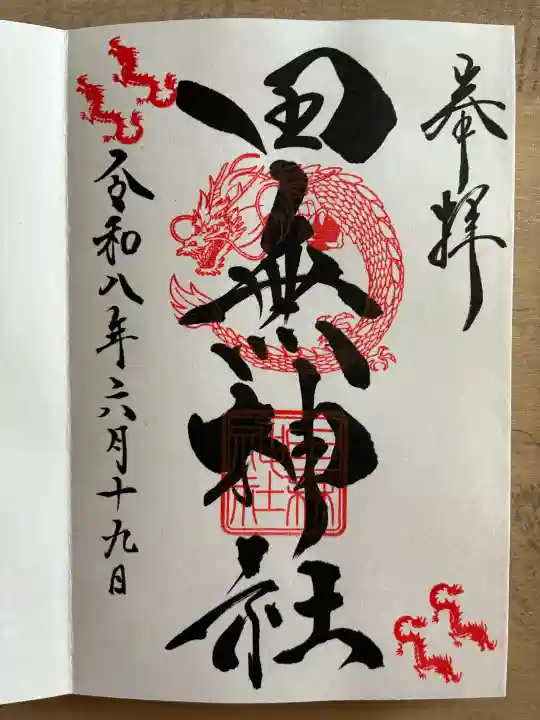 奉拝
田無神社
令和八年六月十九日
田無神社